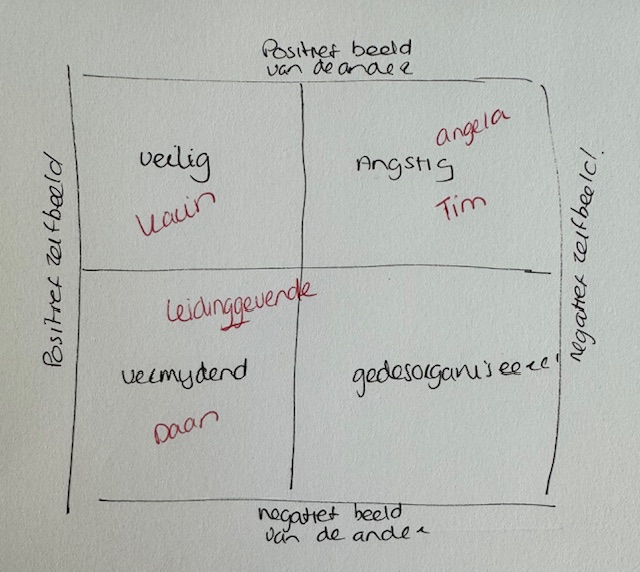 Positief beeld
van de ander
Positief zelfbeeld
negatief zelfbeeld!
veilig
angela
Angstig
Tim
leidinggevende
vermydend
gedesorganiseerd
Daan
negatief beeld
van de ander